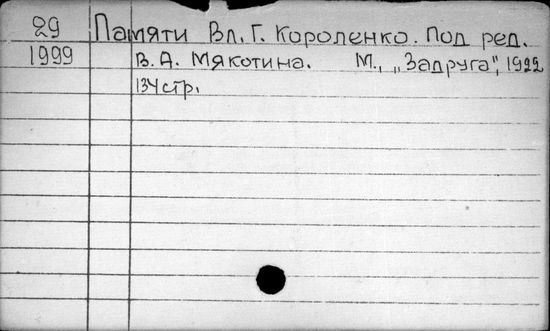 29 Памяти Вл. Г. Короленко. Под ред.
1999 В. А. Мякотина. М., „Задруга", 1922
134 стр.